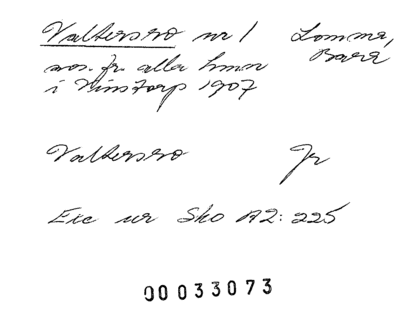 Valtersro nr 1 Lomma,
avs. fr. alla hmn Bara
i Vinstorp 1907
Valtersro Jr
Exc ur Sko A2: 225
00033073